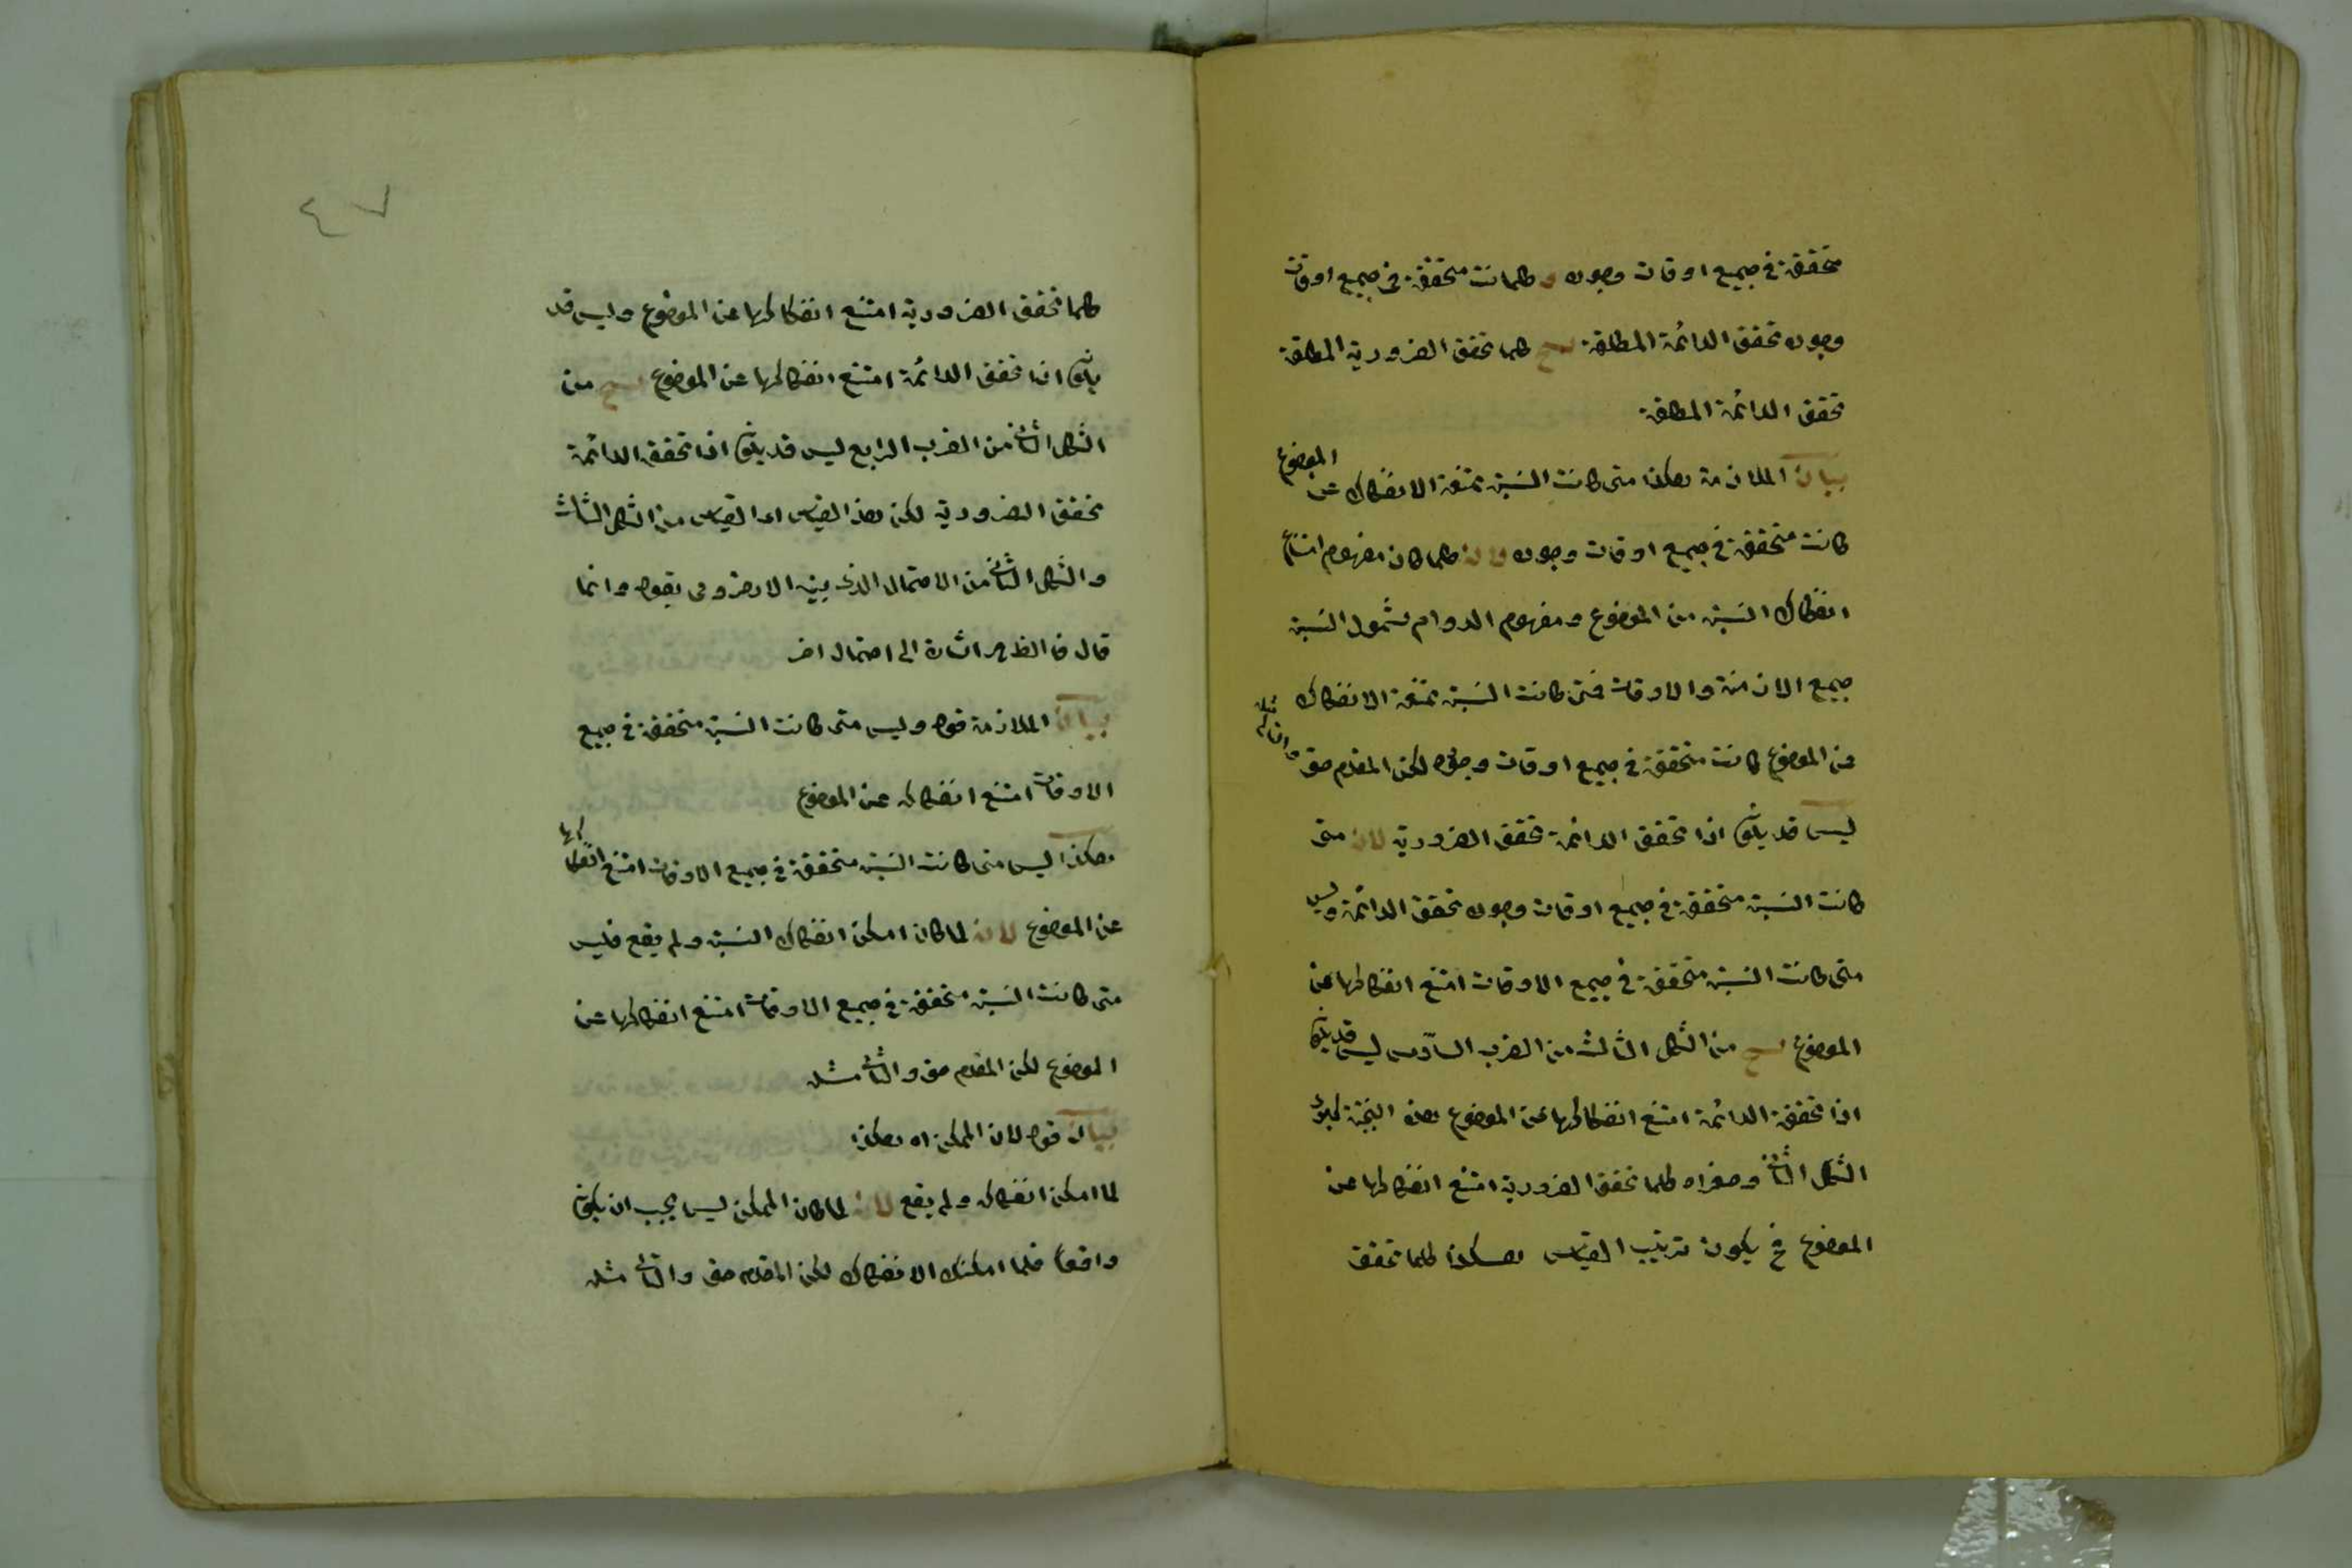 متحققة في جميع اوقات وجوده و كلما كانت متحققة في جميع اوقات
وجوده تحقق الدائمة المطلقة ينتج كلما تحقق الضرورية المطلقة
تحقق الدائمة المطلقة
بيان الملازمة هكذا متى كانت النسبة ممتنعة الانفكاك عن الموضوع
كانت متحققة في جميع اوقات وجوده لانه كلما كان مفهوم امتناع
انفكاك النسبة من الموضوع ومفهوم الدوام شمول النسبة
جميع الازمنة والاوقات فمتى كانت النسبة ممتنعة الانفكاك
عن الموضوع كانت متحققة في جميع اوقات وجوده لكن المقدم حق والتالى مثله
ليس قد يكون اذا تحقق الدائمة تحقق الضرورية لان متى
كانت النسبة متحققة في جميع اوقات وجوده تحقق الدائمة وليس
متى كانت النسبة متحققة في جميع الاوقات امتنع انفكاكها عن
الموضوع ينتج من الشكل الثالث من الضرب السادس ليس قد يكون
اذا تحققت الدائمة امتنع انفكاكها عن الموضوع هذه النتيجة كبرى
الشكل الثانى وصغراه كلما تحقق الضرورية امتنع انفكاكها عن
الموضوع فح يكون ترتيب القياس هكذا كلما تحقق
٤٧
كلما تحقق الضرورية امتنع انفكاكها عن الموضوع وليس قد
يكون اذا تحقق الدائمة امتنع انفكاكها عن الموضوع ينتج من
الشكل الثانى من الضرب الرابع ليس قد يكون اذا تحقق الدائمة
تحقق الضرورية لكن هذا القياس اى القياس من الشكل الثالث
والشكل الثانى من الاحتمال الذى بينه الارضرومى بقوله وانما
قال فى الظهر اشارة الى احتمال اخر
بيان الملازمة قوله وليس متى كانت النسبة متحققة في جميع
الاوقات امتنع انفكاكه عن الموضوع
هكذا ليس متى كانت النسبة متحققة في جميع الاوقات امتنع انفكاكها
عن الموضوع لانه لما كان امكن انفكاك النسبة ولم يقع فليس
متى كانت النسبة متحققة في جميع الاوقات امتنع انفكاكها عن
الموضوع لكن المقدم حق والتالى مثله
بيان قوله لان الممكن اه هكذا
لما امكن انفكاكه ولم يقع لانه لما كان الممكن ليس يجب ان يكون
واقعا فلما امكنك الانفكاك لكن المقدم حق والتالى مثله